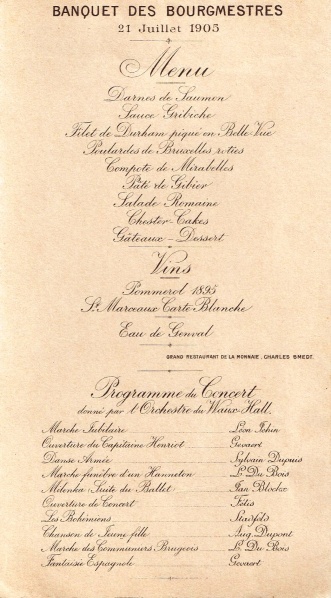 BANQUET DES BOURGMESTRES
21 Juillet 1905
Menu
Darnes de Saumon
Sauce Gribiche
Filet de Durham piqué en Belle Vue
Poulardes de Bruxelles roties
Compote de Mirabelles
Pâté de Gibier
Salade Romaine
Chester Cakes
Gâteaux - Dessert
Vins
Pommerol 1895
St Marceaux Carte Blanche
Eau de Genval
GRAND RESTAURANT DE LA MONNAIE, CHARLES SMEDT.
Programme du Concert
donné par l'Orchestre du Waux-Hall.
Marche Jubilaire Léon Jehin
Ouverture du Capitaine Henriot Gevaert
Danse Armée Sylvain Dupuis
Marche funèbre d'un Hanneton Ld Du Bois
Milenka: Suite du Ballet Jan Blockx
Ouverture de Concert Fétis
Les Bohémiens
Chanson de Jeune fille Aug. Dupont
Marche des Communiers Brugeois Ld Du Bois
Fantaisie Espagnole Gevaert